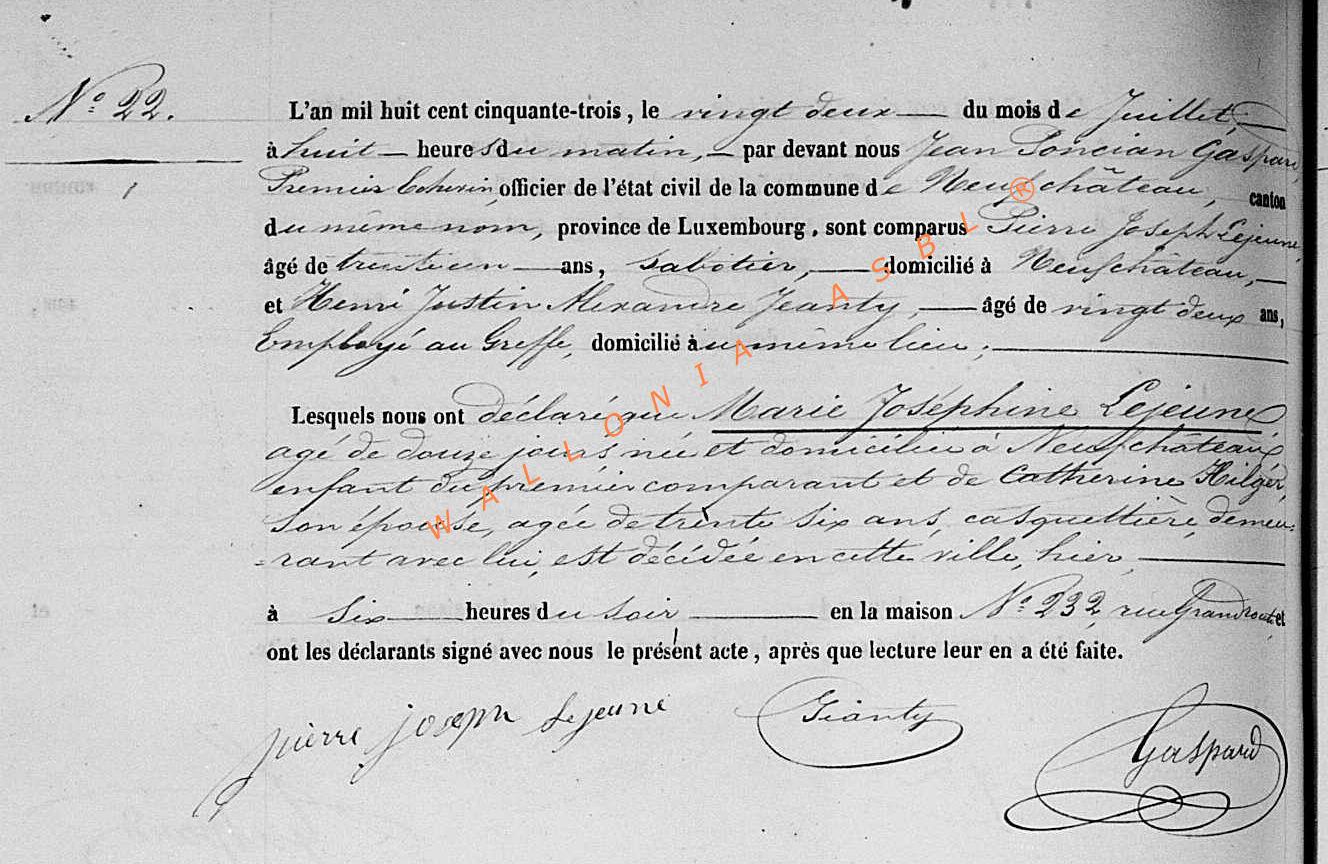 N° 22.
L'an mil huit cent cinquante-trois, le vingt deux du mois de Juillet,
à huit heures du matin, par devant nous Jean Poncian Gaspard,
Premier Echevin, officier de l'état civil de la commune de Neufchâteau, canton
du même nom, province de Luxembourg, sont comparus Pierre Joseph Lejeune,
âgé de trente un ans, sabotier, domicilié à Neufchâteau,
et Henri Justin Alexandre Jeanty, âgé de vingt deux ans,
Employé au Greffe, domicilié au même lieu;
Lesquels nous ont déclaré que Marie Joséphine Lejeune
agé de douze jours née et domiciliée à Neufchâteau,
enfant du premier comparant et de Catherine Hilger,
son épouse, agée de trente six ans, casquettière, demeu=
=rant avec lui, est décédée en cette ville, hier,
à six heures du soir en la maison N° 232, rue Grand route, et
ont les déclarants signé avec nous le présent acte, après que lecture leur en a été faite.
pierre joseph Lejeune Jeanty Gaspard
WALLONIA ASBL ®